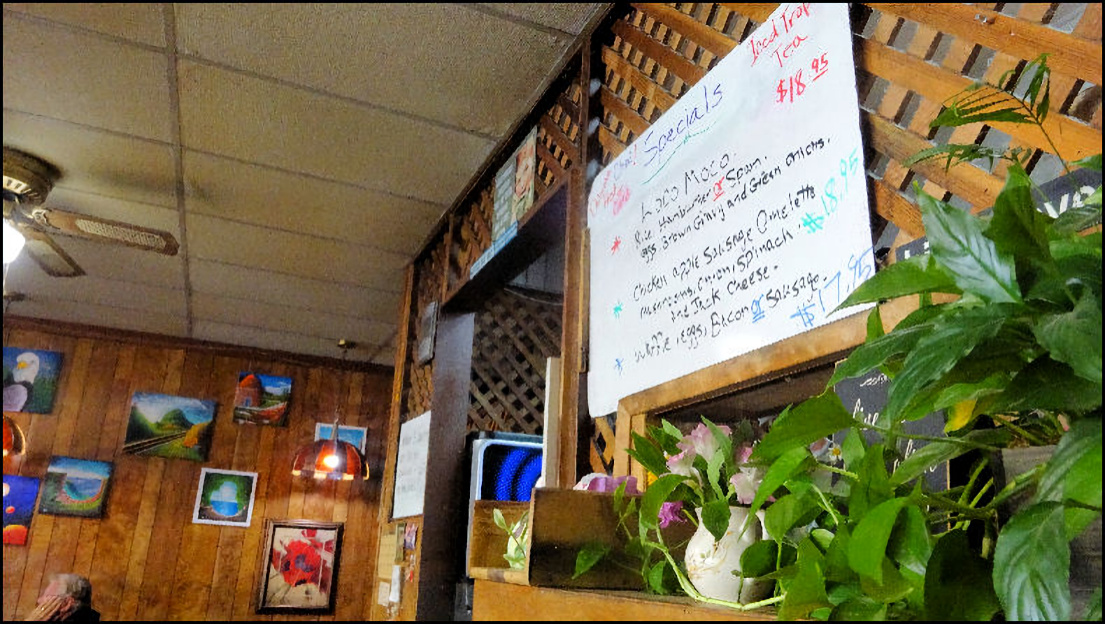 Iced Trop
Tea
$18.95
Specials
Loco Moco.
Rice, Hamburger or Spam.
eggs Brown Gravy and Green onions.
$18.95
Chicken apple Sausage Omelette
mushrooms, onion, spinach.
Jack cheese.
Waffle, eggs, Bacon or Sausage.
$17.95